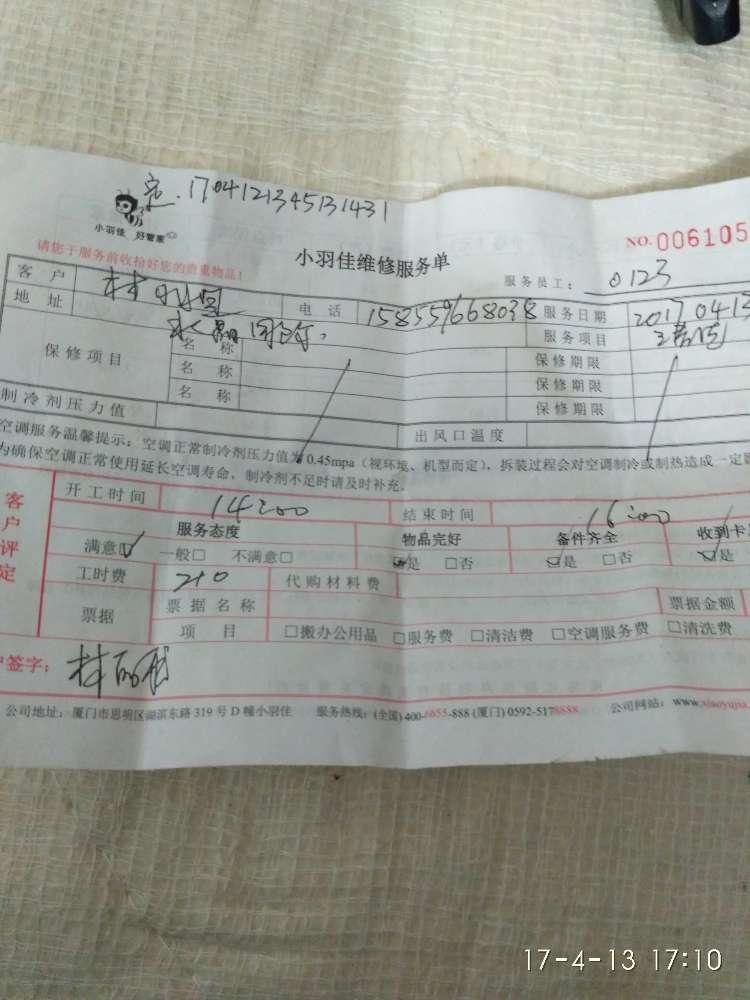 1704121345131431
小羽佳 好管家
NO.006105
小羽佳维修服务单
请您于服务前收拾好您的贵重物品!
服务员工: 0123
客户 林 电话 158559668038 服务日期 2017 04 13
地址 服务项目
保修项目 名称 保修期限
名称 保修期限
名称 保修期限
制冷剂压力值 出风口温度
空调服务温馨提示:空调正常制冷剂压力值为0.45mpa(视环境、机型而定),拆装过程会对空调制冷或制热造成一定
为确保空调正常使用延长空调寿命,制冷剂不足时请及时补充。
客户评定
开工时间 14:00 结束时间 16:00
服务态度 物品完好 备件齐全 收到卡
满意☑ 一般□ 不满意□ ☑是 □否 ☑是 □否 ☑是
工时费 210 代购材料费
票据 票据名称 票据金额
项目 □搬办公用品 □服务费 □清洁费 □空调服务费 □清洗费
户签字: 林
公司地址:厦门市思明区湖滨东路319号D幢小羽佳 服务热线:(全国)400-6655-888 (厦门)0592-5178888 公司网站:www.xiaoyujia.
17-4-13 17:10